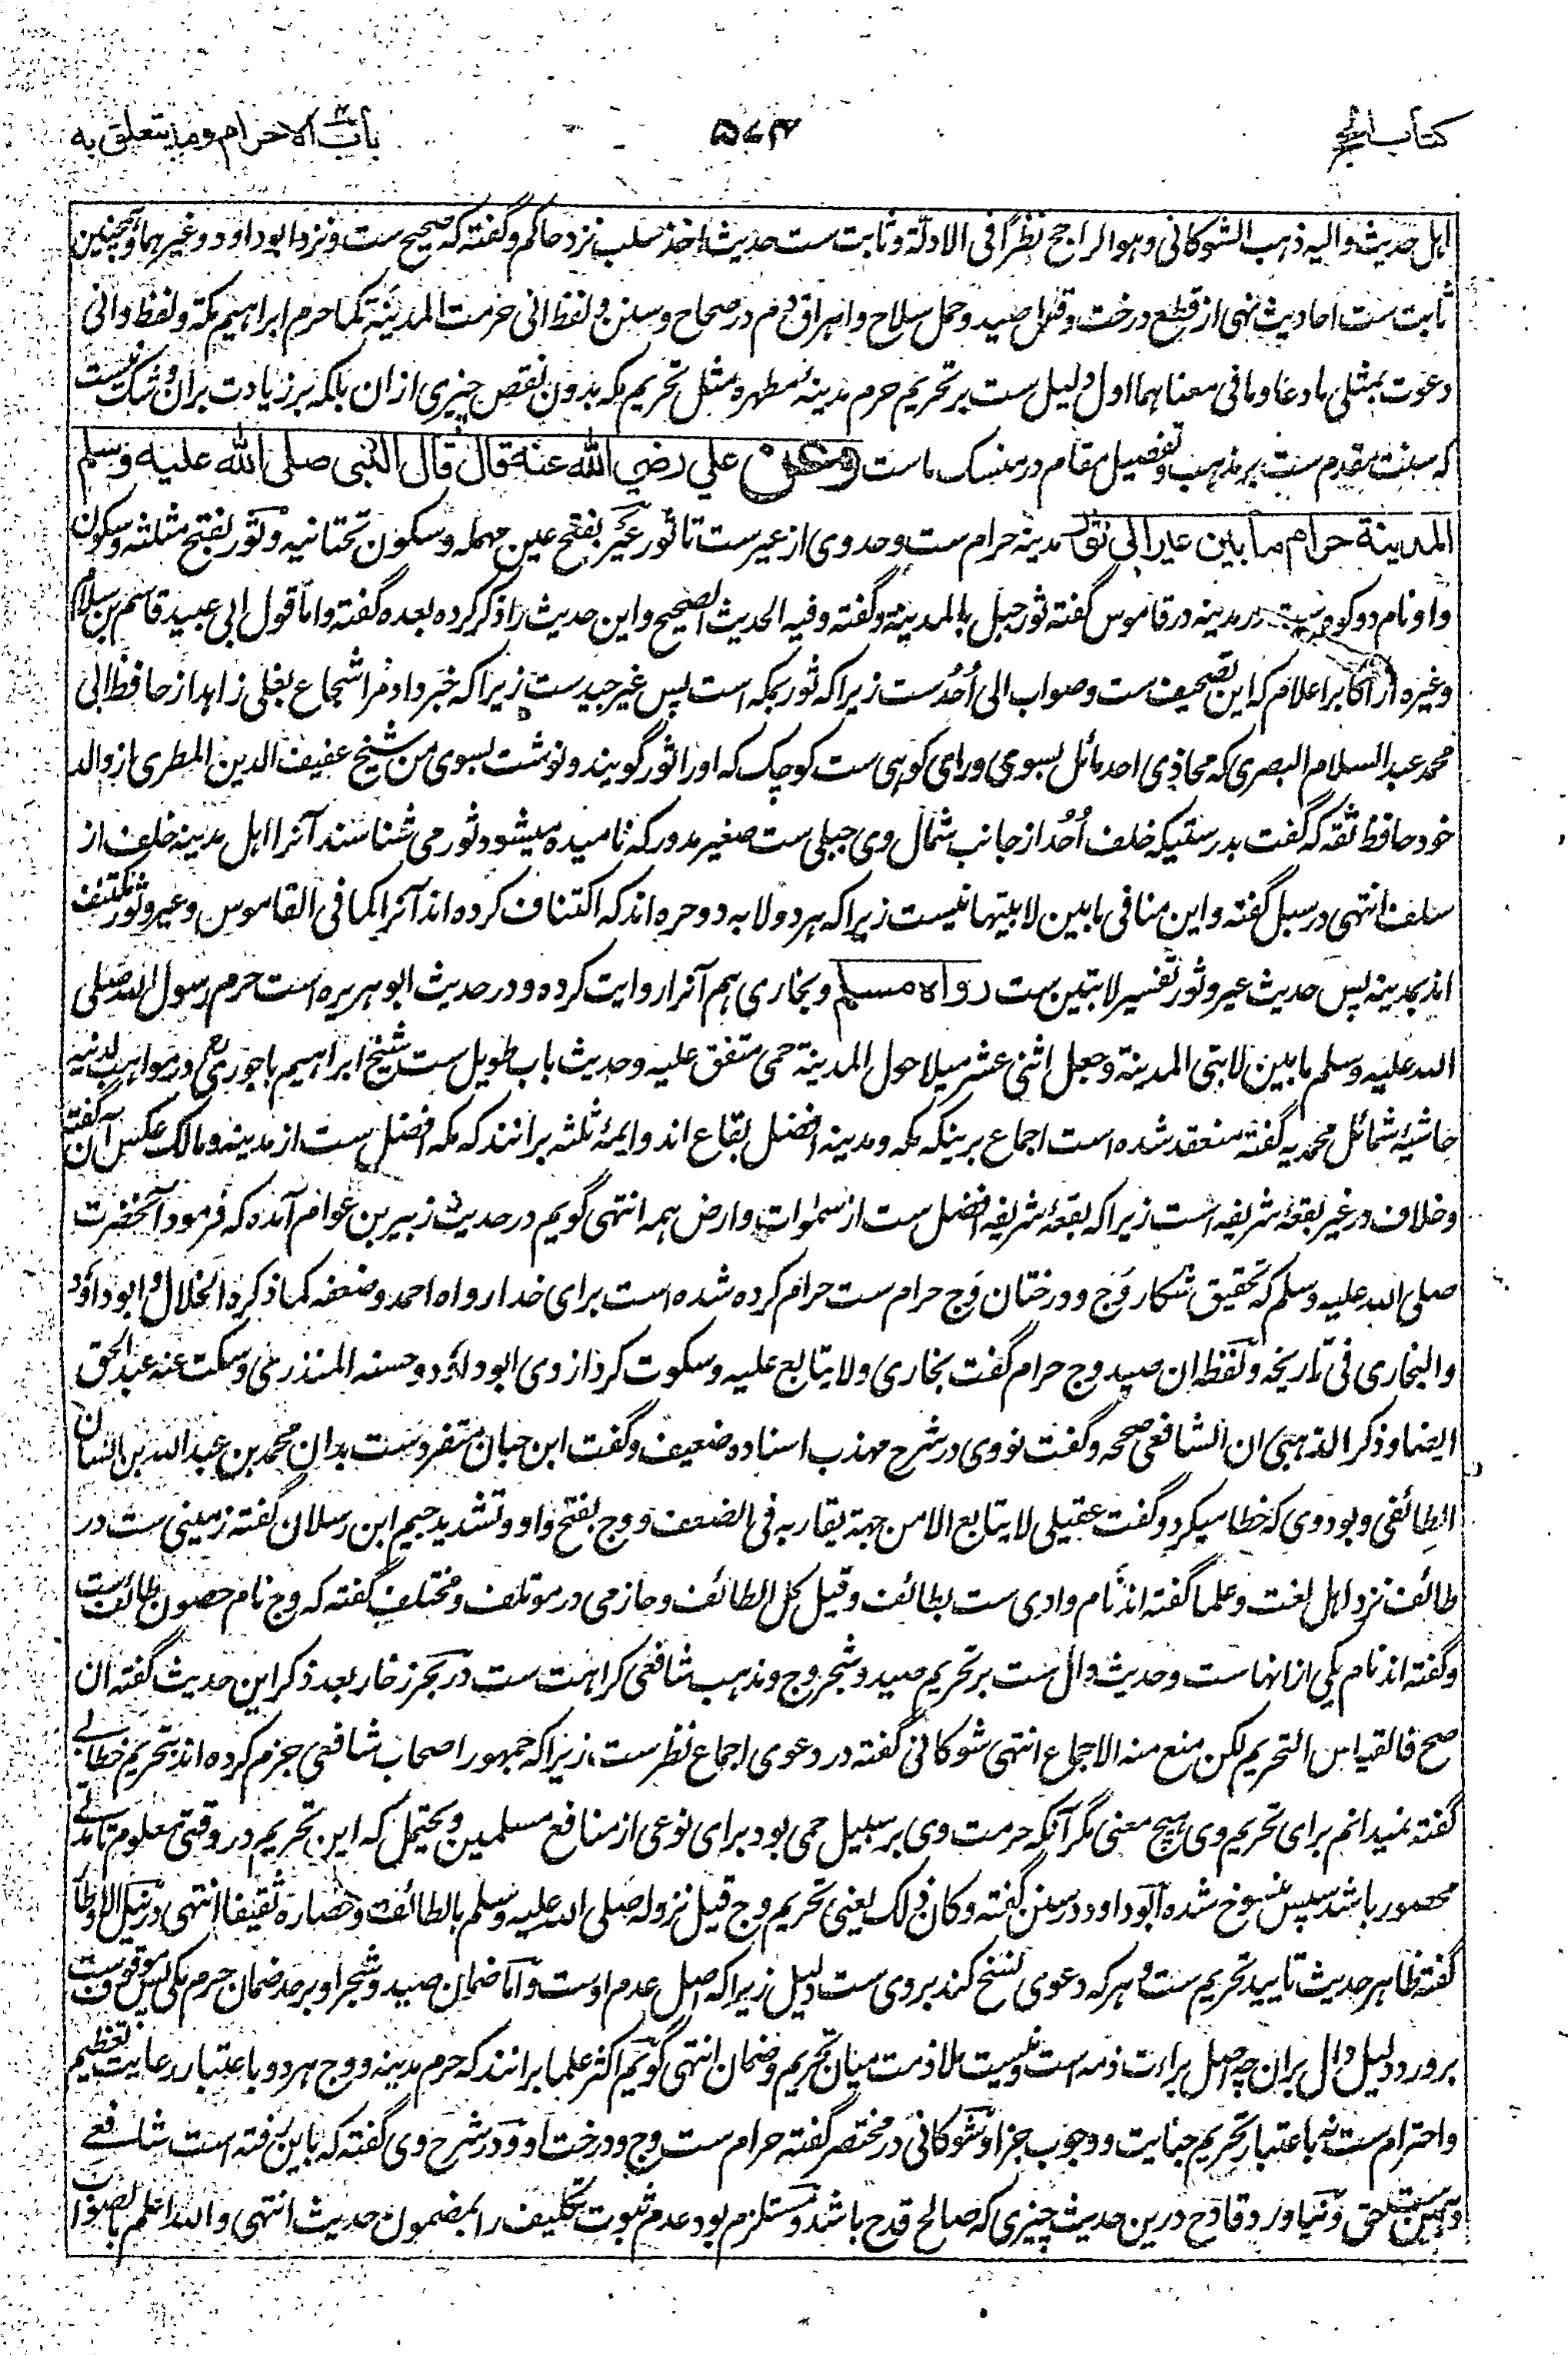 كتاب الحج
۵۶۴
باب الاحرام وما يتعلق به
اہل حدیث والیہ ذہب الشوکانی وہو الراجح نظرًا فی الادلۃ وثابت ست حدیث اخذ سلب نزد حاکم وگفتہ کہ صحیح ست ونزد ابوداود وغیرہما وہمچنین
ثابت ست احادیث نہی از قطع درخت وقتل صید وحمل سلاح واہراق دم در صحاح وسنن ولفظ انی حرمت المدینۃ کما حرم ابراہیم مکۃ ولفظ وانی
دعوت بمثلی مادعا وما فی معناہما اول دلیل ست بر تحریم حرم مدینہ مطہرہ مثل تحریم مکہ بدون نقص چیزی ازان بلکہ بر زیادت بران وشک نیست
کہ سنت مقدم ست بر مذہب وتفصیل مقام در منسک ماست وعن علي رضي الله عنه قال قال النبي صلى الله عليه وسلم
المدينة حرام ما بين عير الى ثور مدینہ حرام ست وحد وی از عیرست تا ثور عَیر بفتح عین مہملہ وسکون تحتانیہ وثور بفتح مثلثہ وسکون
واو نام دو کوہ ست در مدینہ در قاموس گفتہ ثور جبل بالمدینۃ وگفتہ وفیہ الحدیث الصحیح واین حدیث را ذکر کردہ بعدہ گفتہ واما قول ابی عبید قاسم بن سلام
وغیرہ از اکابر اعلام کہ این تصحیف ست وصواب الی اُحُد ست زیرا کہ ثور بمکہ است پس غیر جید ست زیرا کہ خبر داد مرا شجاع بغلی زاہد از حافظ ابی
محمد عبد السلام البصری کہ محاذی احد مائل بسوی ورای کوہی ست کوچک کہ اورا ثور گویند ونوشت بسوی من شیخ عفیف الدین المطری از والد
خود حافظ ثقہ کہ گفت بدرستیکہ خلف اُحُد از جانب شمال وی جبلی ست صغیر مدور کہ نامیدہ میشود ثور می شناسند آنرا اہل مدینہ خلف از
سلف انتہی در سبل گفتہ واین منافی مابین لابتیہا نیست زیرا کہ ہر دو لابہ دو حرہ اند کہ اکتناف کردہ اند آنرا کما فی القاموس وعیر وثور مکتنف
اند بمدینہ پس حدیث عیر وثور تفسیر لابتین ست رواه مسلم وبخاری ہم آنرا روایت کردہ ودر حدیث ابوہریرہ است حرم رسول اللہ صلی
اللہ علیہ وسلم مابین لابتی المدینۃ وجعل اثنی عشر میلا حول المدینۃ حمی متفق علیہ وحدیث باب طویل ست شیخ ابراہیم باجوری در مواہب لدنیہ
حاشیۂ شمائل محمدیہ گفتہ منعقد شدہ است اجماع برینکہ مکہ ومدینہ افضل بقاع اند وایمۂ ثلثہ برانند کہ مکہ افضل ست از مدینہ ومالک عکس آن گفتہ
وخلاف در غیر بقعۂ شریفہ است زیرا کہ بقعۂ شریفہ افضل ست از سمٰوات وارض ہمہ انتہی گویم در حدیث زبیر بن عوام آمدہ کہ فرمود آنحضرت
صلی اللہ علیہ وسلم کہ تحقیق شکار وَج ودرختان وَج حرام ست حرام کردہ شدہ است برای خدا رواہ احمد وضعفہ کما ذکرہ الخلال وابوداؤد
والبخاری فی تاریخہ ولفظہ ان صید وج حرام گفت بخاری ولا یتابع علیہ وسکوت کرد از وی ابوداؤد وحسنہ المنذری وسکت عنہ عبد الحق
ایضا وذکر الذہبی ان الشافعی صححہ وگفت نووی در شرح مہذب اسنادہ ضعیف وگفت ابن حبان متفردست بدان محمد بن عبد اللہ بن انسان
الطائفی وبود وی کہ خطا میکرد وگفت عقیلی لا یتابع الا من جہۃ یقاربہ فی الضعف ووج بفتح واو وتشدید جیم ابن رسلان گفتہ زمینی ست در
طائف نزد اہل لغت وعلما گفتہ اند نام وادی ست بطائف وقیل کل الطائف وحازمی در موتلف ومختلف گفتہ کہ وج نام حصون طائف ست
وگفتہ اند نام یکی ازانہاست وحدیث دال ست بر تحریم صید وشجر وج ومذہب شافعی کراہت ست در بحر زخار بعد ذکر این حدیث گفتہ ان
صح فالقیاس التحریم لکن منع منہ الاجماع انتہی شوکانی گفتہ در دعوی اجماع نظرست زیرا کہ جمہور اصحاب شافعی جزم کردہ اند بتحریم خطابی
گفتہ نمیدانم برای تحریم وی ہیچ معنی مگر آنکہ حرمت وی بر سبیل حمی بود برای نوعی از منافع مسلمین ویحتمل کہ این تحریم در وقتی معلوم تا مدتی
محصور باشد سپس منسوخ شدہ ابوداود در سنن گفتہ وکان ذلک یعنی تحریم وج قبل نزولہ صلی اللہ علیہ وسلم بالطائف وحصارہ ثقیفا انتہی در نیل الاوطار
گفتہ ظاہر حدیث تایید تحریم ست وہر کہ دعوی نسخ کند بروی ست دلیل زیرا کہ اصل عدم اوست واما ضمان صید وشجر او بر حد ضمان حرم مکی پس موقوف ست
بر ورود دلیل دال بران چہ اصل براءت ذمہ است ونیست ملازمت میان تحریم وضمان انتہی گویم اکثر علما برانند کہ حرم مدینہ ووج ہر دو باعتبار رعایت تعظیم
واحترام ست نہ باعتبار تحریم جنایت ووجوب جزا وشوکانی در مختصر گفتہ حرام ست وج ودرخت او ودر شرح وی گفتہ کہ باین رفتہ است شافعی
وہمین ست حق ونیاورد قادح درین حدیث چیزی کہ صالح قدح باشد ومستلزم بود عدم ثبوت تکلیف را بمضمون حدیث انتہی واللہ اعلم بالصواب